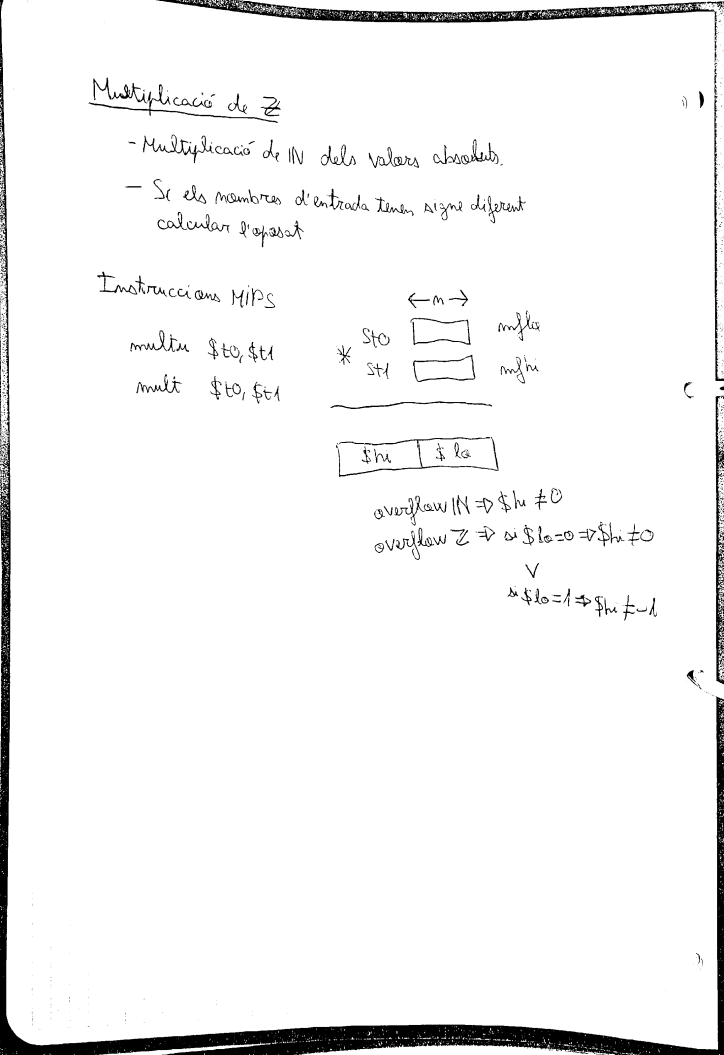 Multiplicació de ℤ
- Multiplicació de ℕ dels valors absoluts.
- Si els nombres d'entrada tenen signe diferent
calcular l'oposat
Instruccions MIPS
← n →
$t0 mflo
multu $t0, $t1
* $t1 mfhi
mult $t0, $t1
$hi $lo
overflow ℕ ⇒ $hi ≠ 0
overflow ℤ ⇒ si $lo=0 ⇒ $hi ≠ 0
∨
si $lo=1 ⇒ $hi ≠ -1